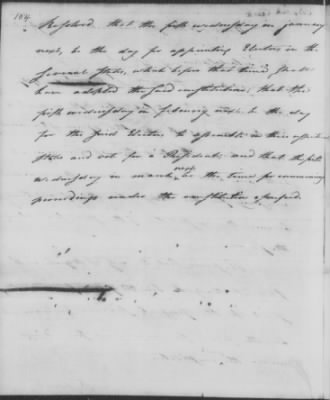 104
Resolved that the first wednesday in january
next, be the day for appointing Electors in the
several states, which before that time shall
have adopted the said constitution; that the
first wednesday in february next, be the day
for the said Electors to assemble in their respective
states and vote for a President; and that the first
wednesday in march next be the time for commencing
proceedings under the constitution aforesaid.